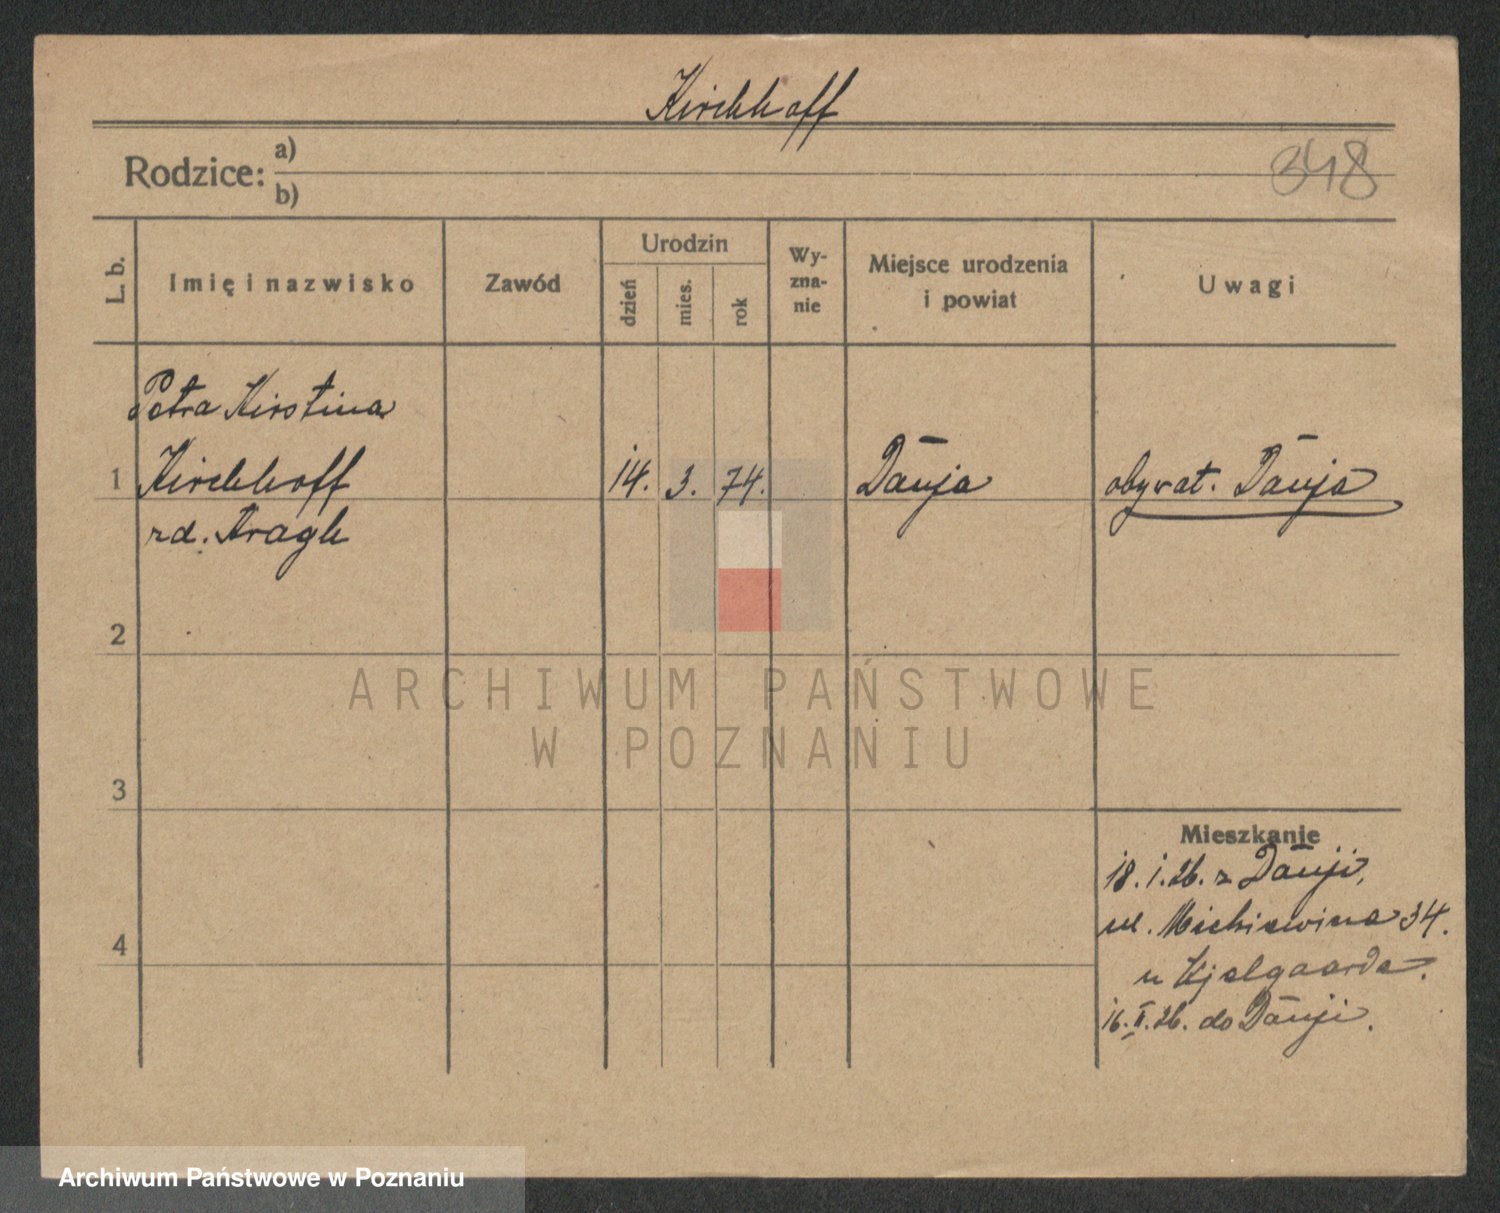 Kirchhoff
Rodzice: a)
b)
348
L. b.
Imię i nazwisko
Zawód
Urodzin
dzień
mies.
rok
Wy-
zna-
nie
Miejsce urodzenia
i powiat
Uwagi
Petra Kirstina
1 Kirchhoff 14. 3. 74. Danja obywat. Danja
zd. Kragh
2
3
4
Mieszkanie
18. 1. 26. z Danji,
ul. Mickiewicza 34.
u Kjelgaarda.
16. II. 26. do Danji.
ARCHIWUM PAŃSTWOWE
W POZNANIU
Archiwum Państwowe w Poznaniu